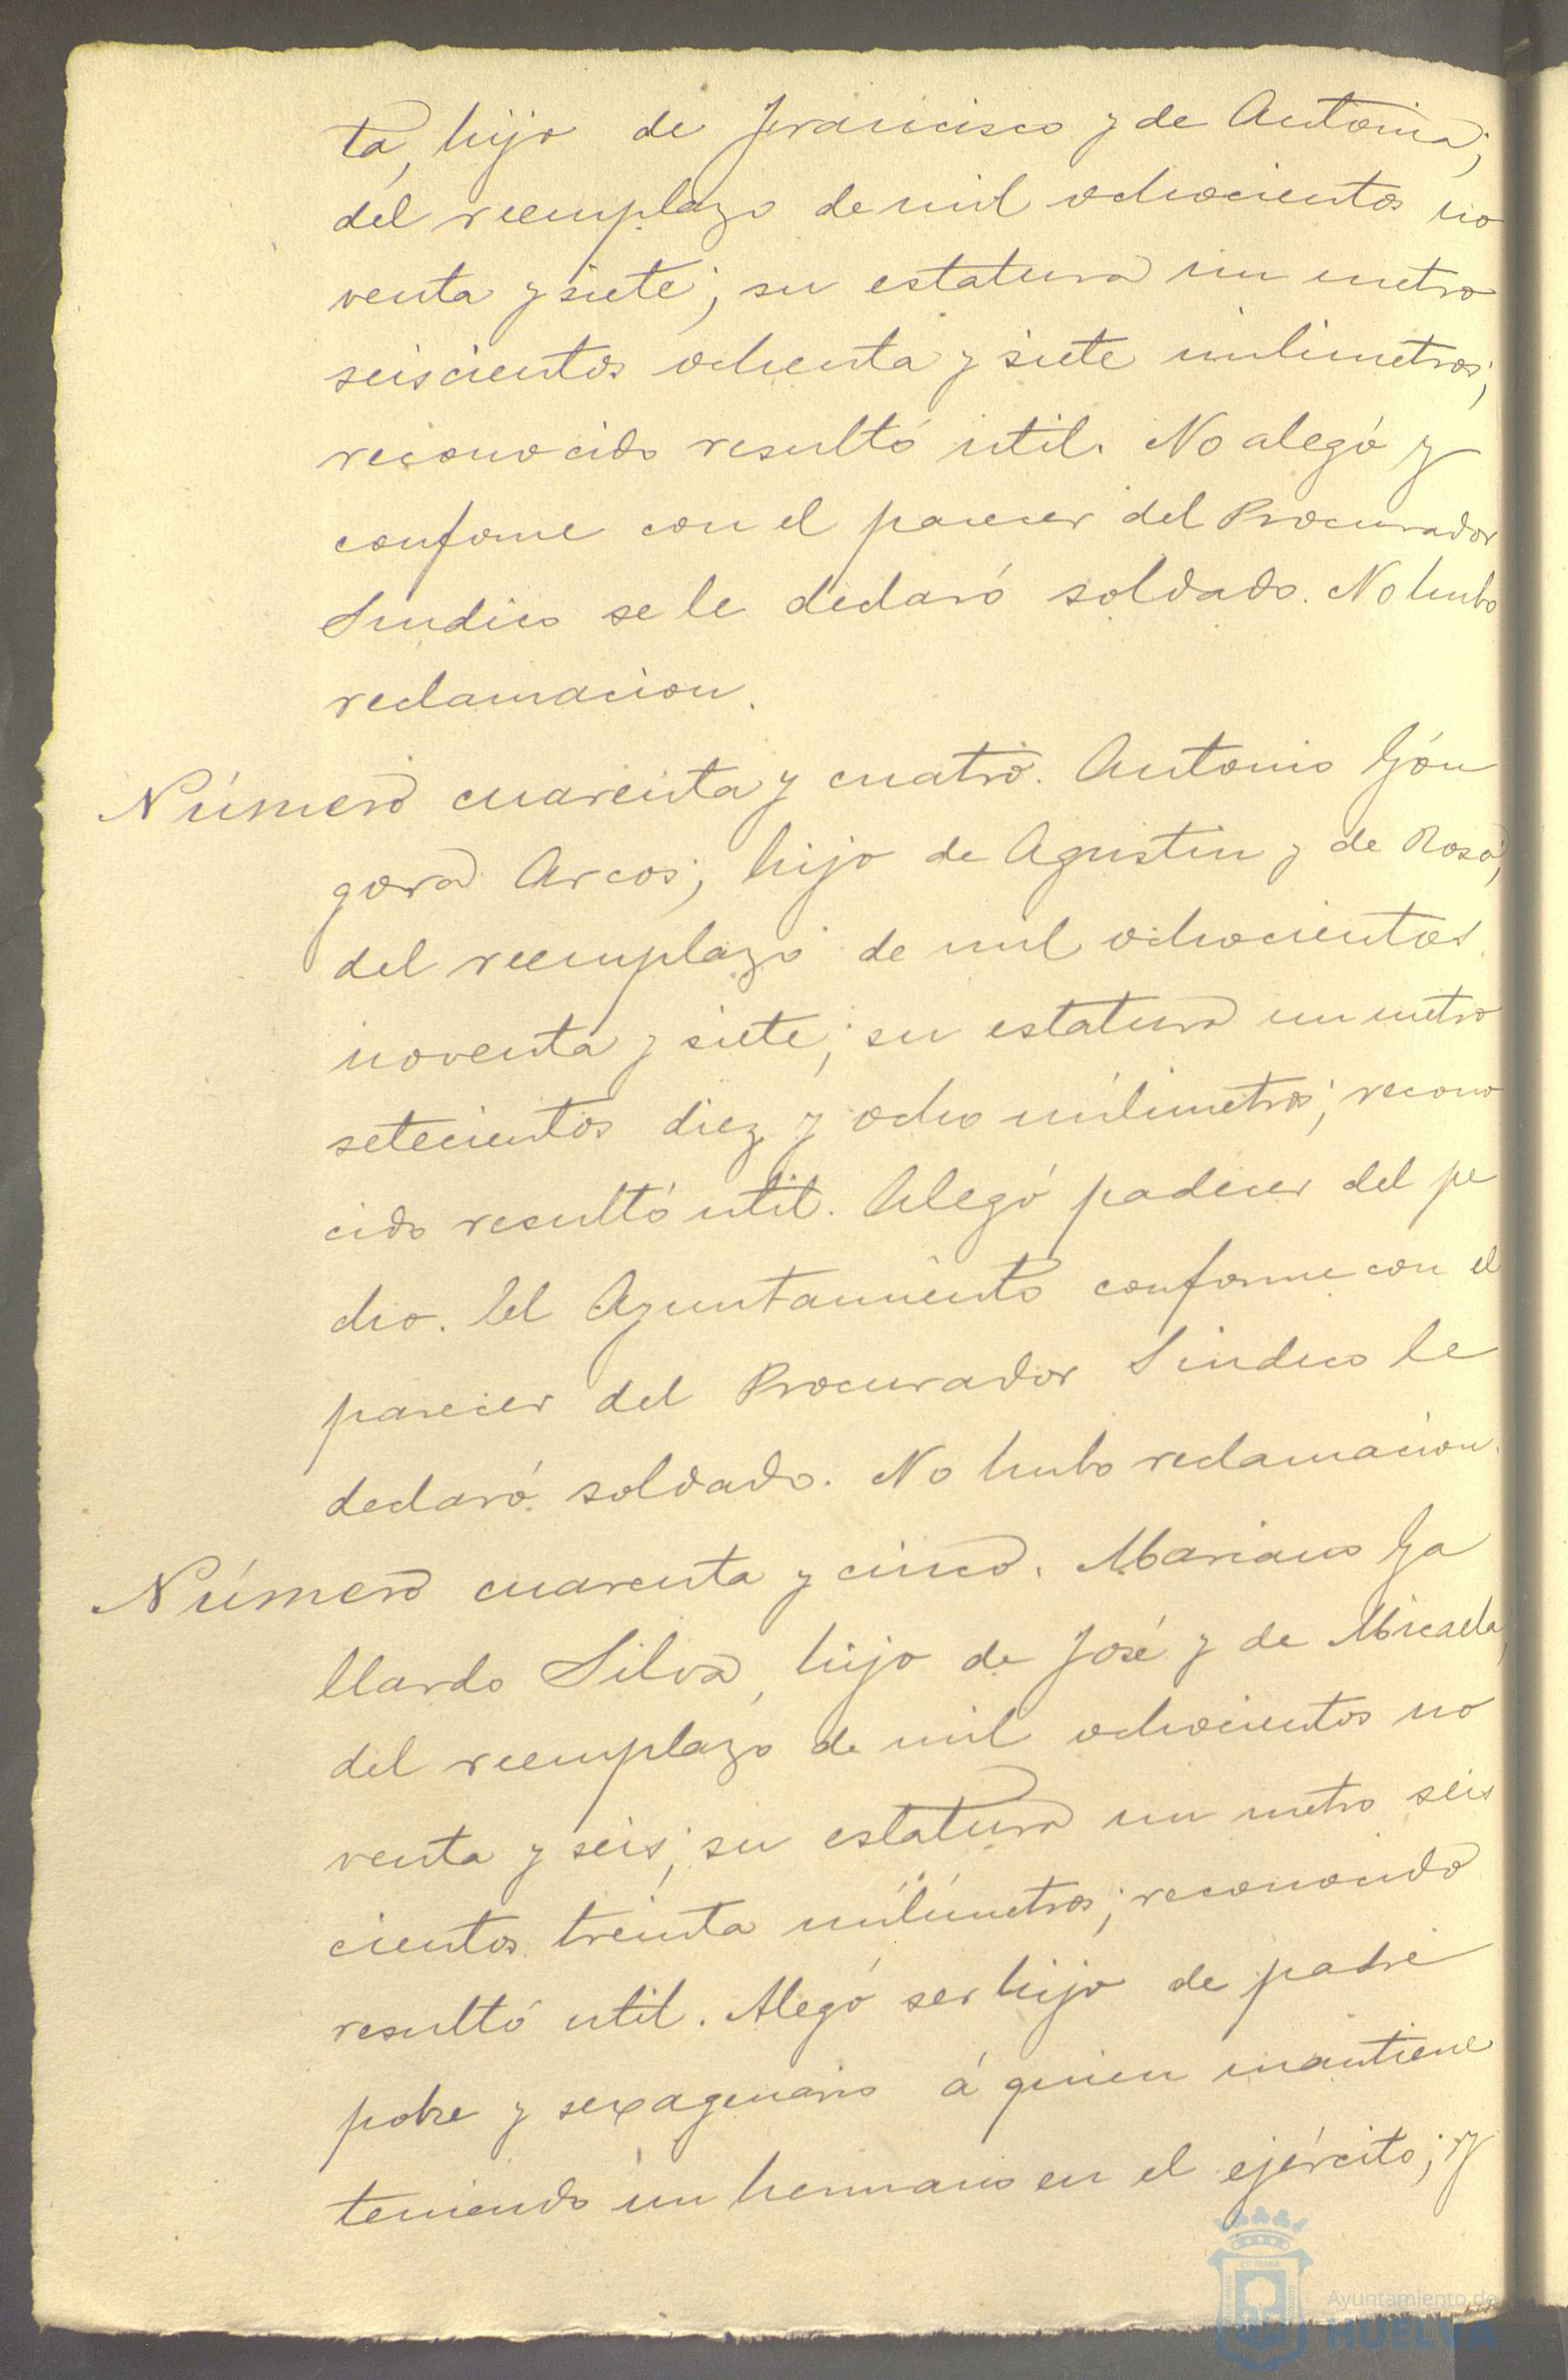 ta, hijo de Francisco y de Antonia;
del reemplazo de mil ochocientos no
venta y siete; su estatura un metro
seiscientos ochenta y siete milimetros;
reconocido resultó util. No alegó y
confome con el parecer del Procurador
Sindico se le declaró soldado. No hubo
reclamacion.
Número cuarenta y cuatro. Antonio Gón
gora Arcos; hijo de Agustin y de Rosa;
del reemplazo de mil ochocientos
noventa y siete; su estatura un metro
setecientos diez y ocho milimetros; recono
cido resultó util. Alegó padecer del pe
cho. El Ayuntamiento conforme con el
parecer del Procurador Sindico le
declaró soldado. No hubo reclamacion.
Número cuarenta y cinco. Mariano Ga
llardo Silva, hijo de José y de Micaela,
del reemplazo de mil ochocientos no
venta y seis; su estatura un metro seis
cientos treinta milímetros; reconocido
resultó util. Alegó ser hijo de padre
pobre y sexagenario á quien mantiene
teniendo un hermano en el ejército; y
Ayuntamiento de
HUELVA